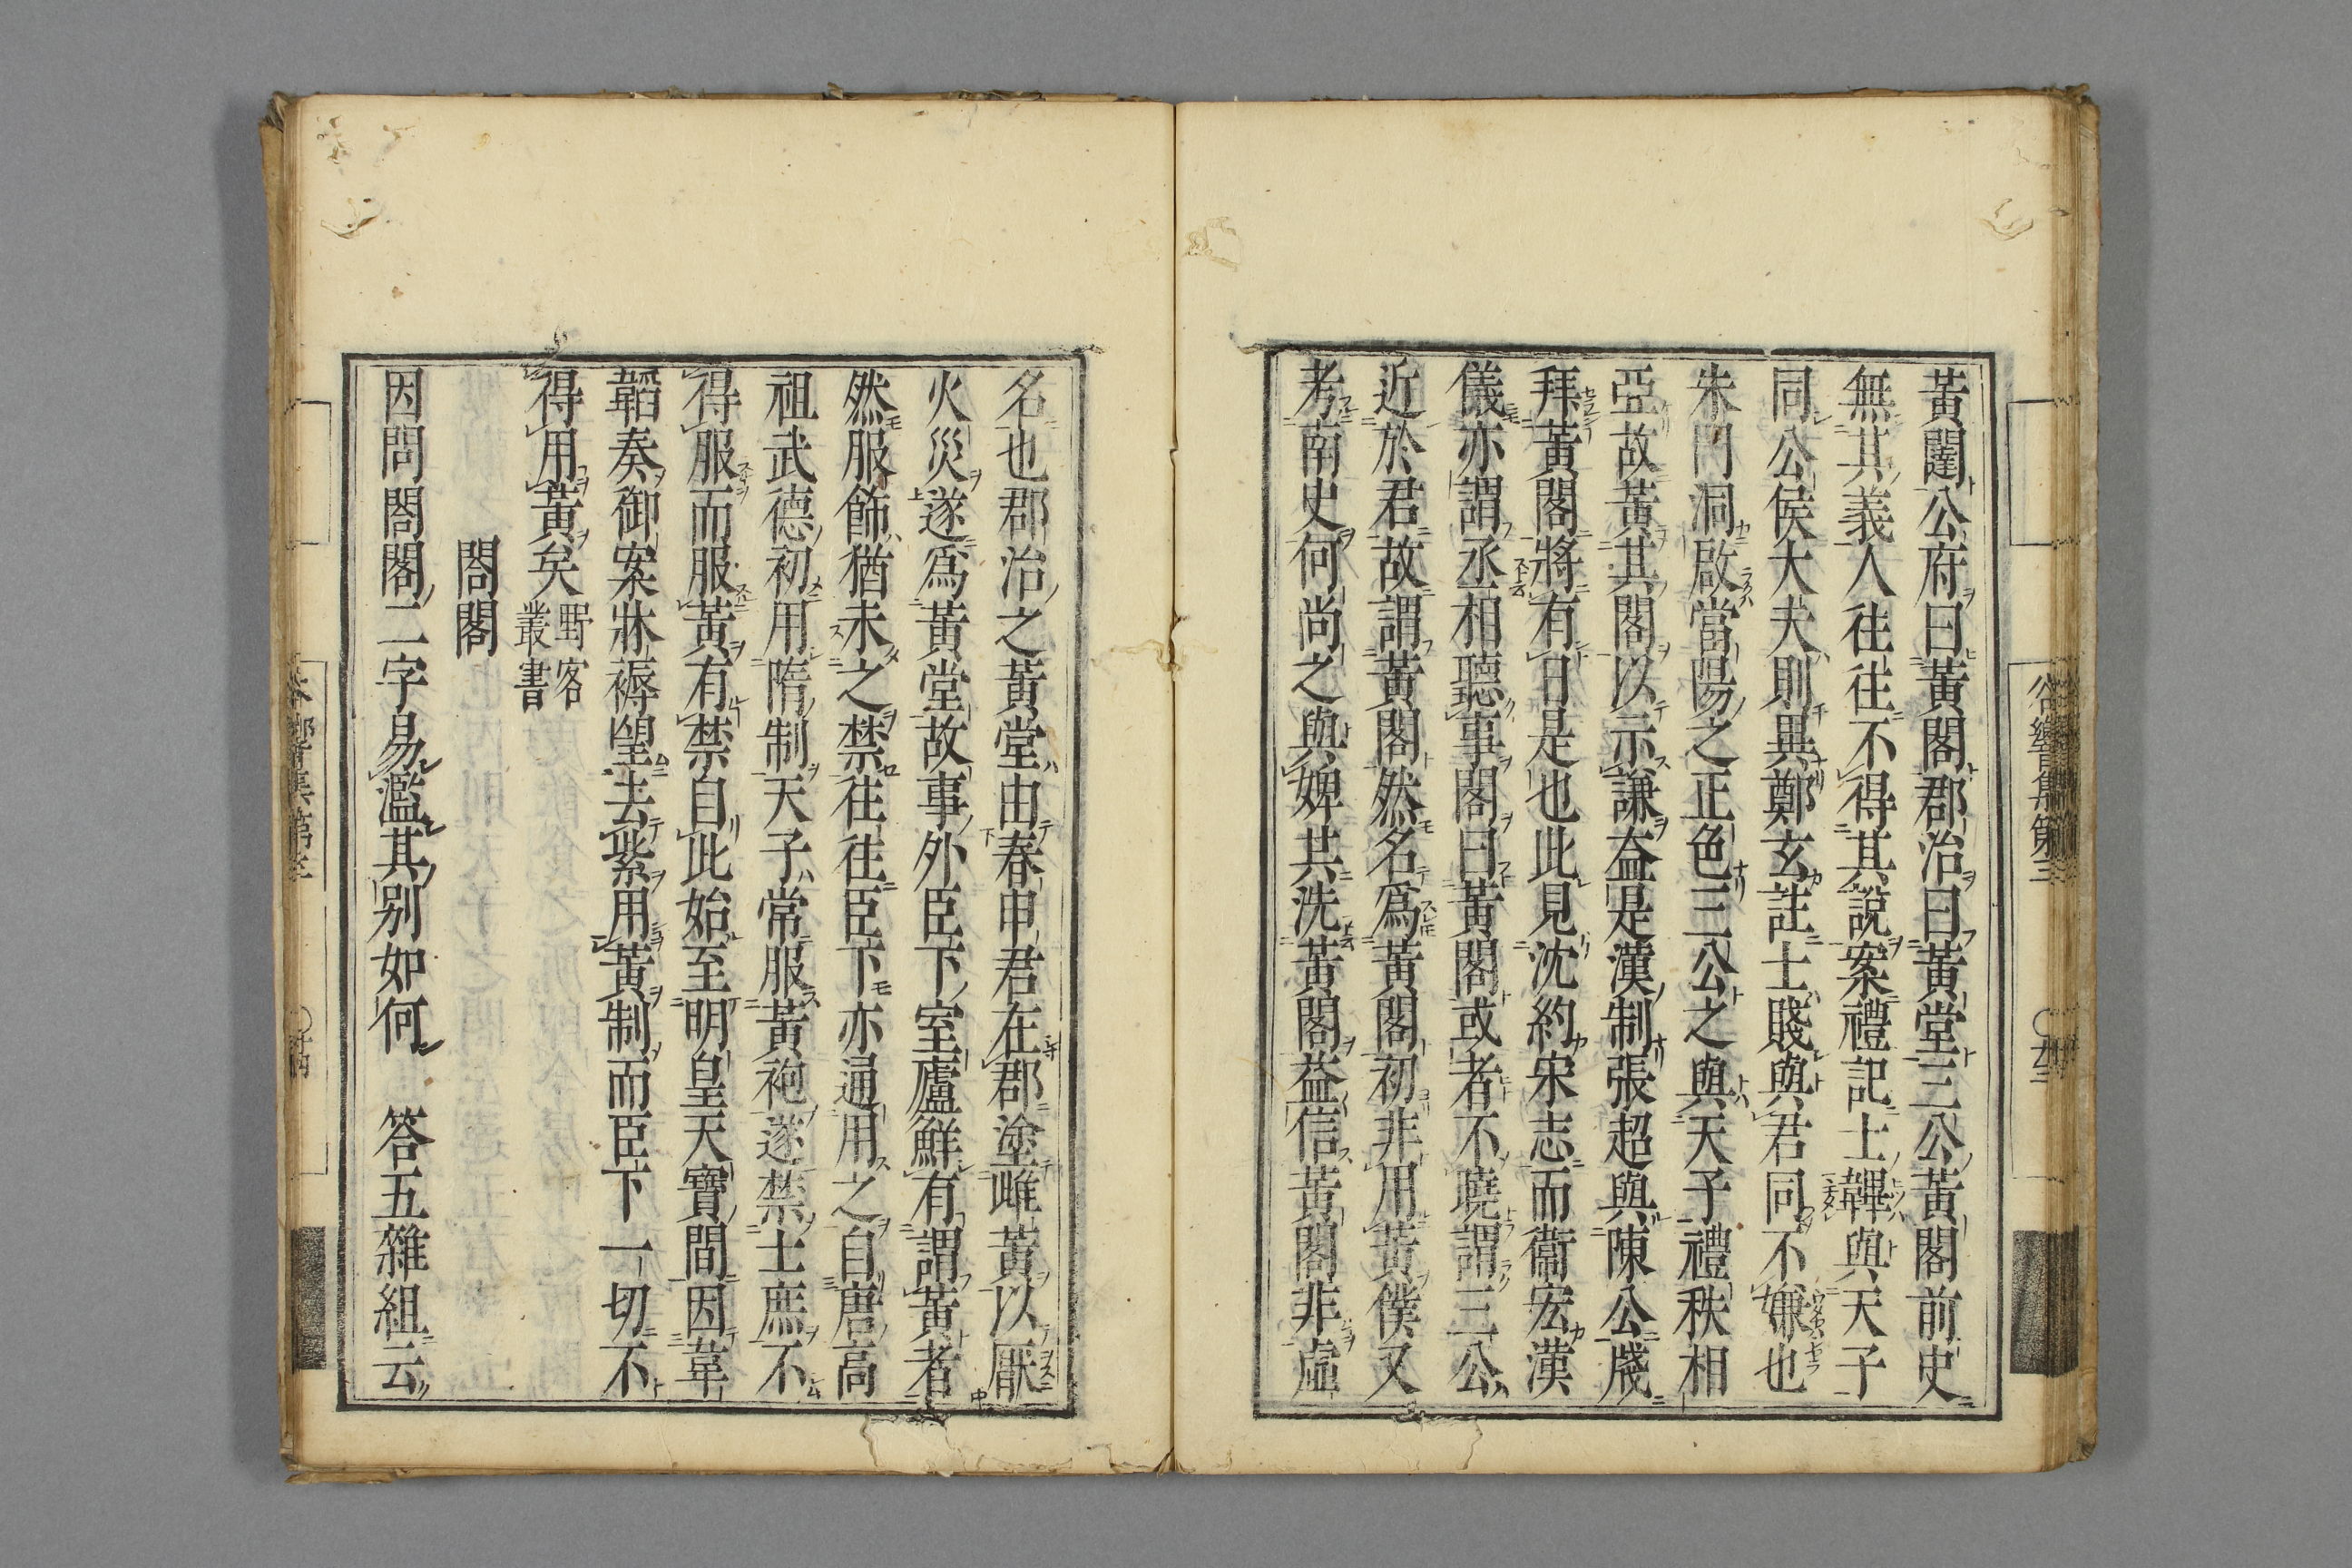 黃闥公府曰黃閣郡治曰黃堂三公黃閣前史
無其義人往往不得其說案禮記士韠與天子
同公侯大夫則異鄭玄註士賤與君同不嫌也
朱門洞啟當陽之正色三公之與天子禮秩相
亞故黃其閣以示謙益是漢制張超與陳公牋
拜黃閣將有日是也此見沈約宋志而衞宏漢
儀亦謂丞相聽事閣曰黃閣或者不曉謂三公
近於君故謂黃閣然名爲黃閣初非用黃僕又
考南史何尚之與婢共洗黃閣益信黃閣非虛
名也郡治之黃堂由春申君在郡塗雌黃以厭
火災遂爲黃堂故事外臣下室廬鮮有謂黃者
然服飾猶未之禁往往臣下亦通用之自唐高
祖武德初用隋制天子常服黃袍遂禁士庶不
得服而服黃有禁自此始至明皇天寶間因韋
韜奏御案牀褥望去紫用黃制而臣下一切不
得用黃矣 野客叢書
閤閣
因問閤閣二字易濫其別如何 答五雜組云
谷響集第三